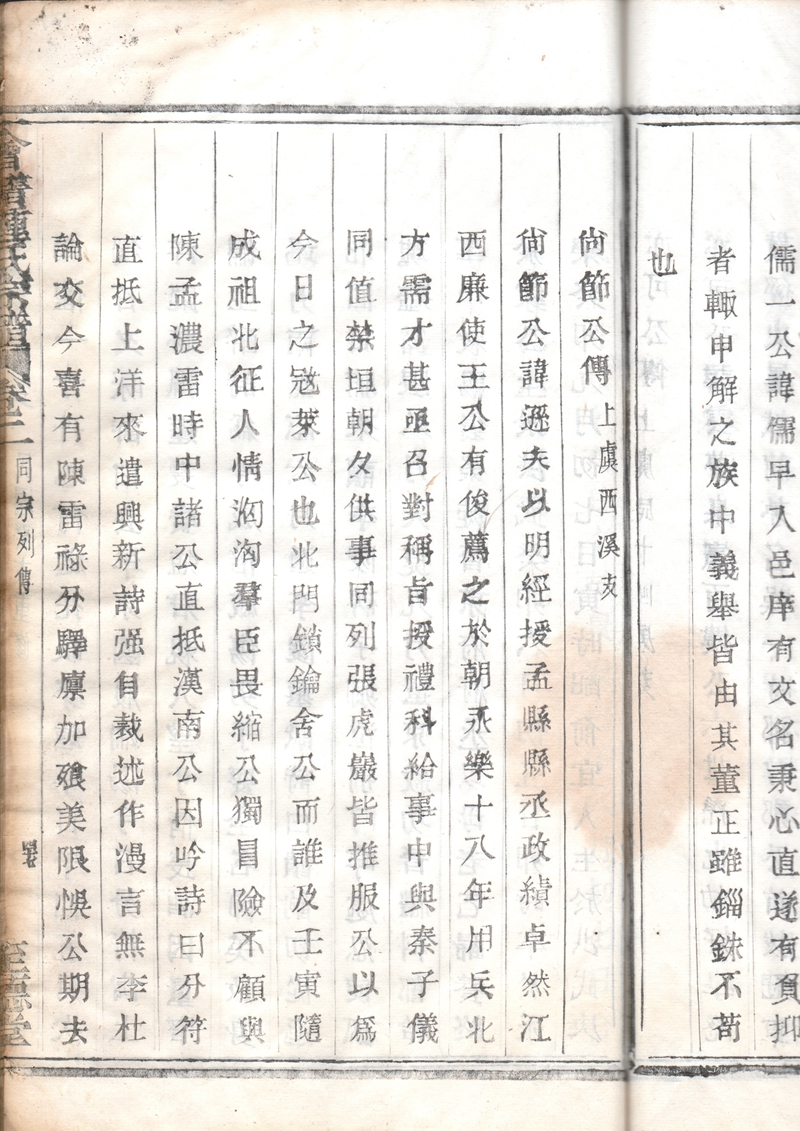 儒一公諱儒早入邑庠有文名秉心直遂有負抑
者輙申解之族中義舉皆由其董正雖錙銖不茍
也
尙節公傳上虞西溪支
尙節公諱遜夫以明經授孟縣縣丞政績卓然江
西廉使王公有俊薦之於朝永樂十八年用兵北
方需才甚亟召對稱旨授禮科給事中與秦子儀
同値禁垣朝夕供事同列張虎巖皆推服公以爲
今日之冦萊公也北門鎖鑰舍公而誰及壬寅隨
成祖北征人情洶洶羣臣畏縮公獨冒險不顧與
陳孟濃雷時中諸公直抵漠南公因吟詩曰分符
直抵上洋來遣興新詩强自裁述作漫言無李杜
論交今喜有陳雷祿分驛廪加飱美限悞公期去
會稽氏宗譜卷二同宗列傳